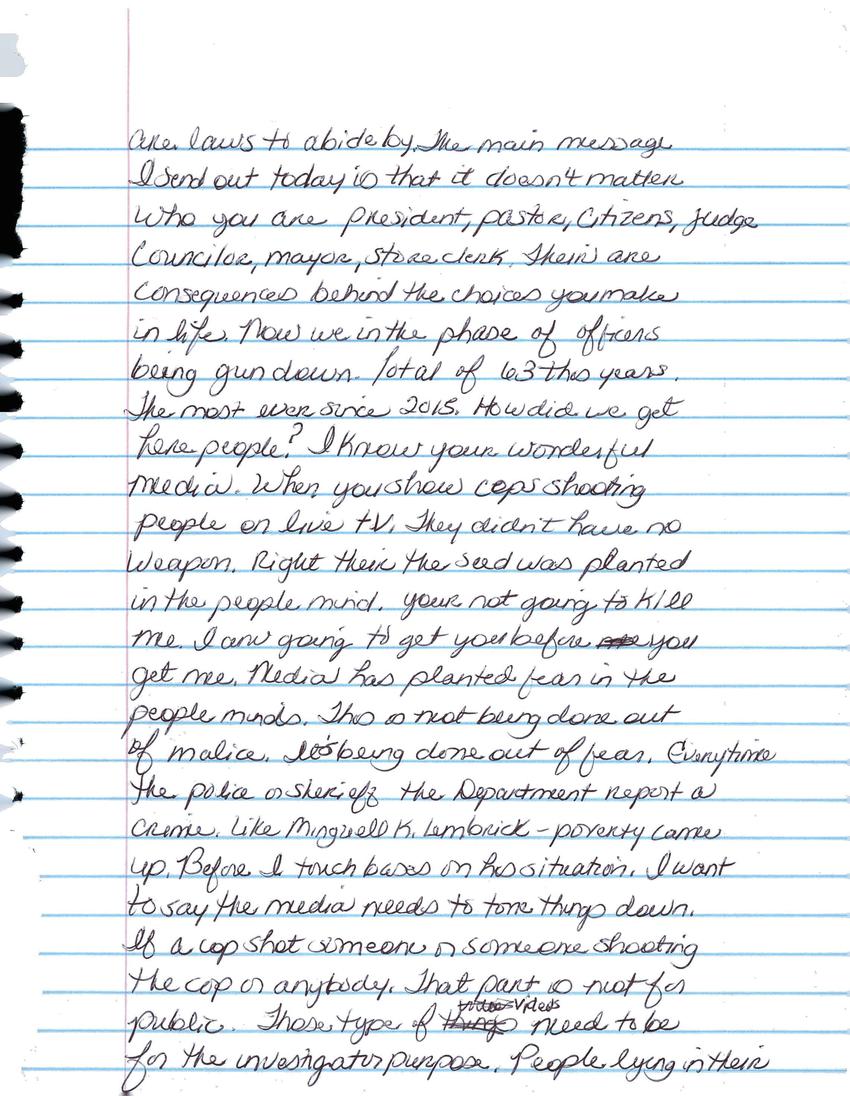 are laws to abide by. The main message
I send out today is that it doesn't matter
who you are president, pastor, citizens, judge
Councilor, mayor, store clerk. Their are
consequences behind the choices you make
in life. Now we in the phase of officers
being gun down. Total of 63 this years.
The most ever since 2015. How did we get
here people? I know your wonderful
media. When you show cops shooting
people on live tv. They didn't have no
weapon. Right their the seed was planted
in the people mind. your not going to kill
me. I am going to get you before you
get me. Media has planted fear in the
people minds. This is not being done out
of malice. It's being done out of fear. Everytime
the police or sheriefz the Department report a
crime. Like Mingwell K. Lembrick - poverty came
up. Before I touch bases on his situation. I want
to say the media needs to tone things down.
If a cop shot someone or someone shooting
the cop or anybody. That part is not for
public. Those type of videos need to be
for the investigator purpose. People lying in their